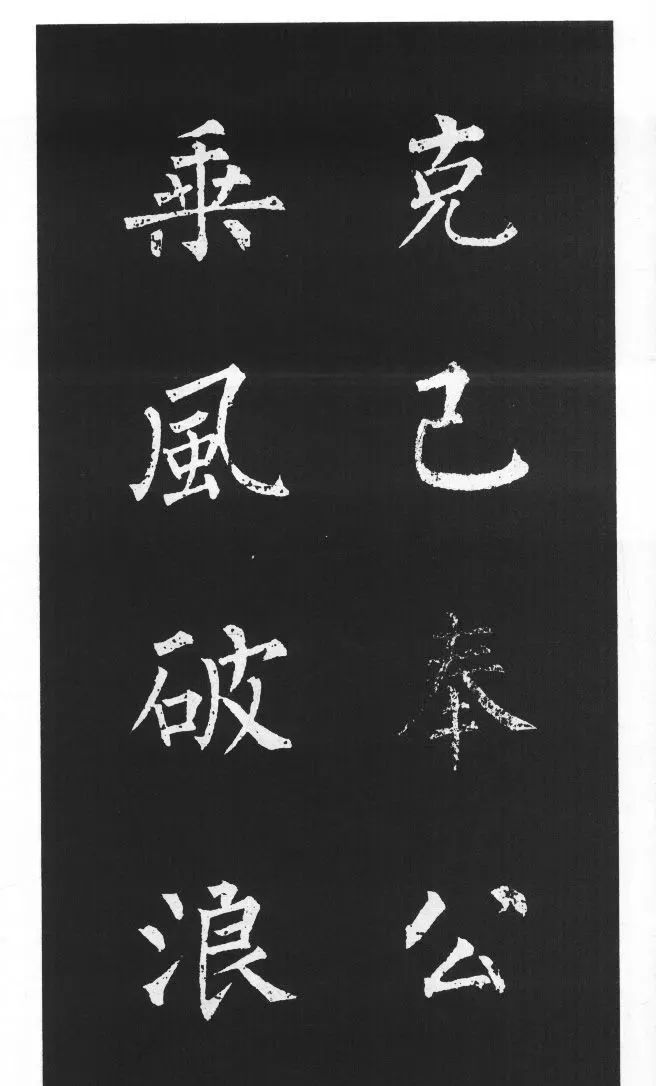 克己奉公
乘風破浪